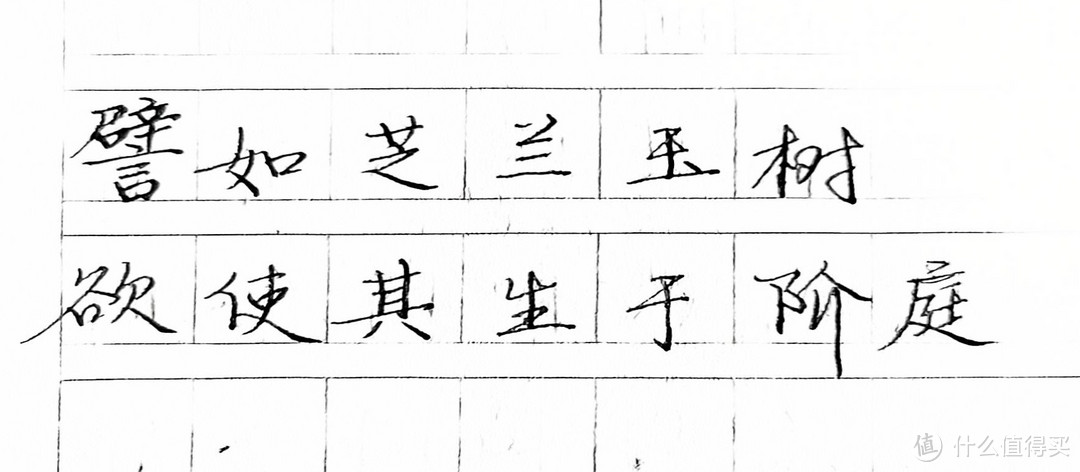 譬如芝兰玉树
欲使其生于阶庭
值 什么值得买